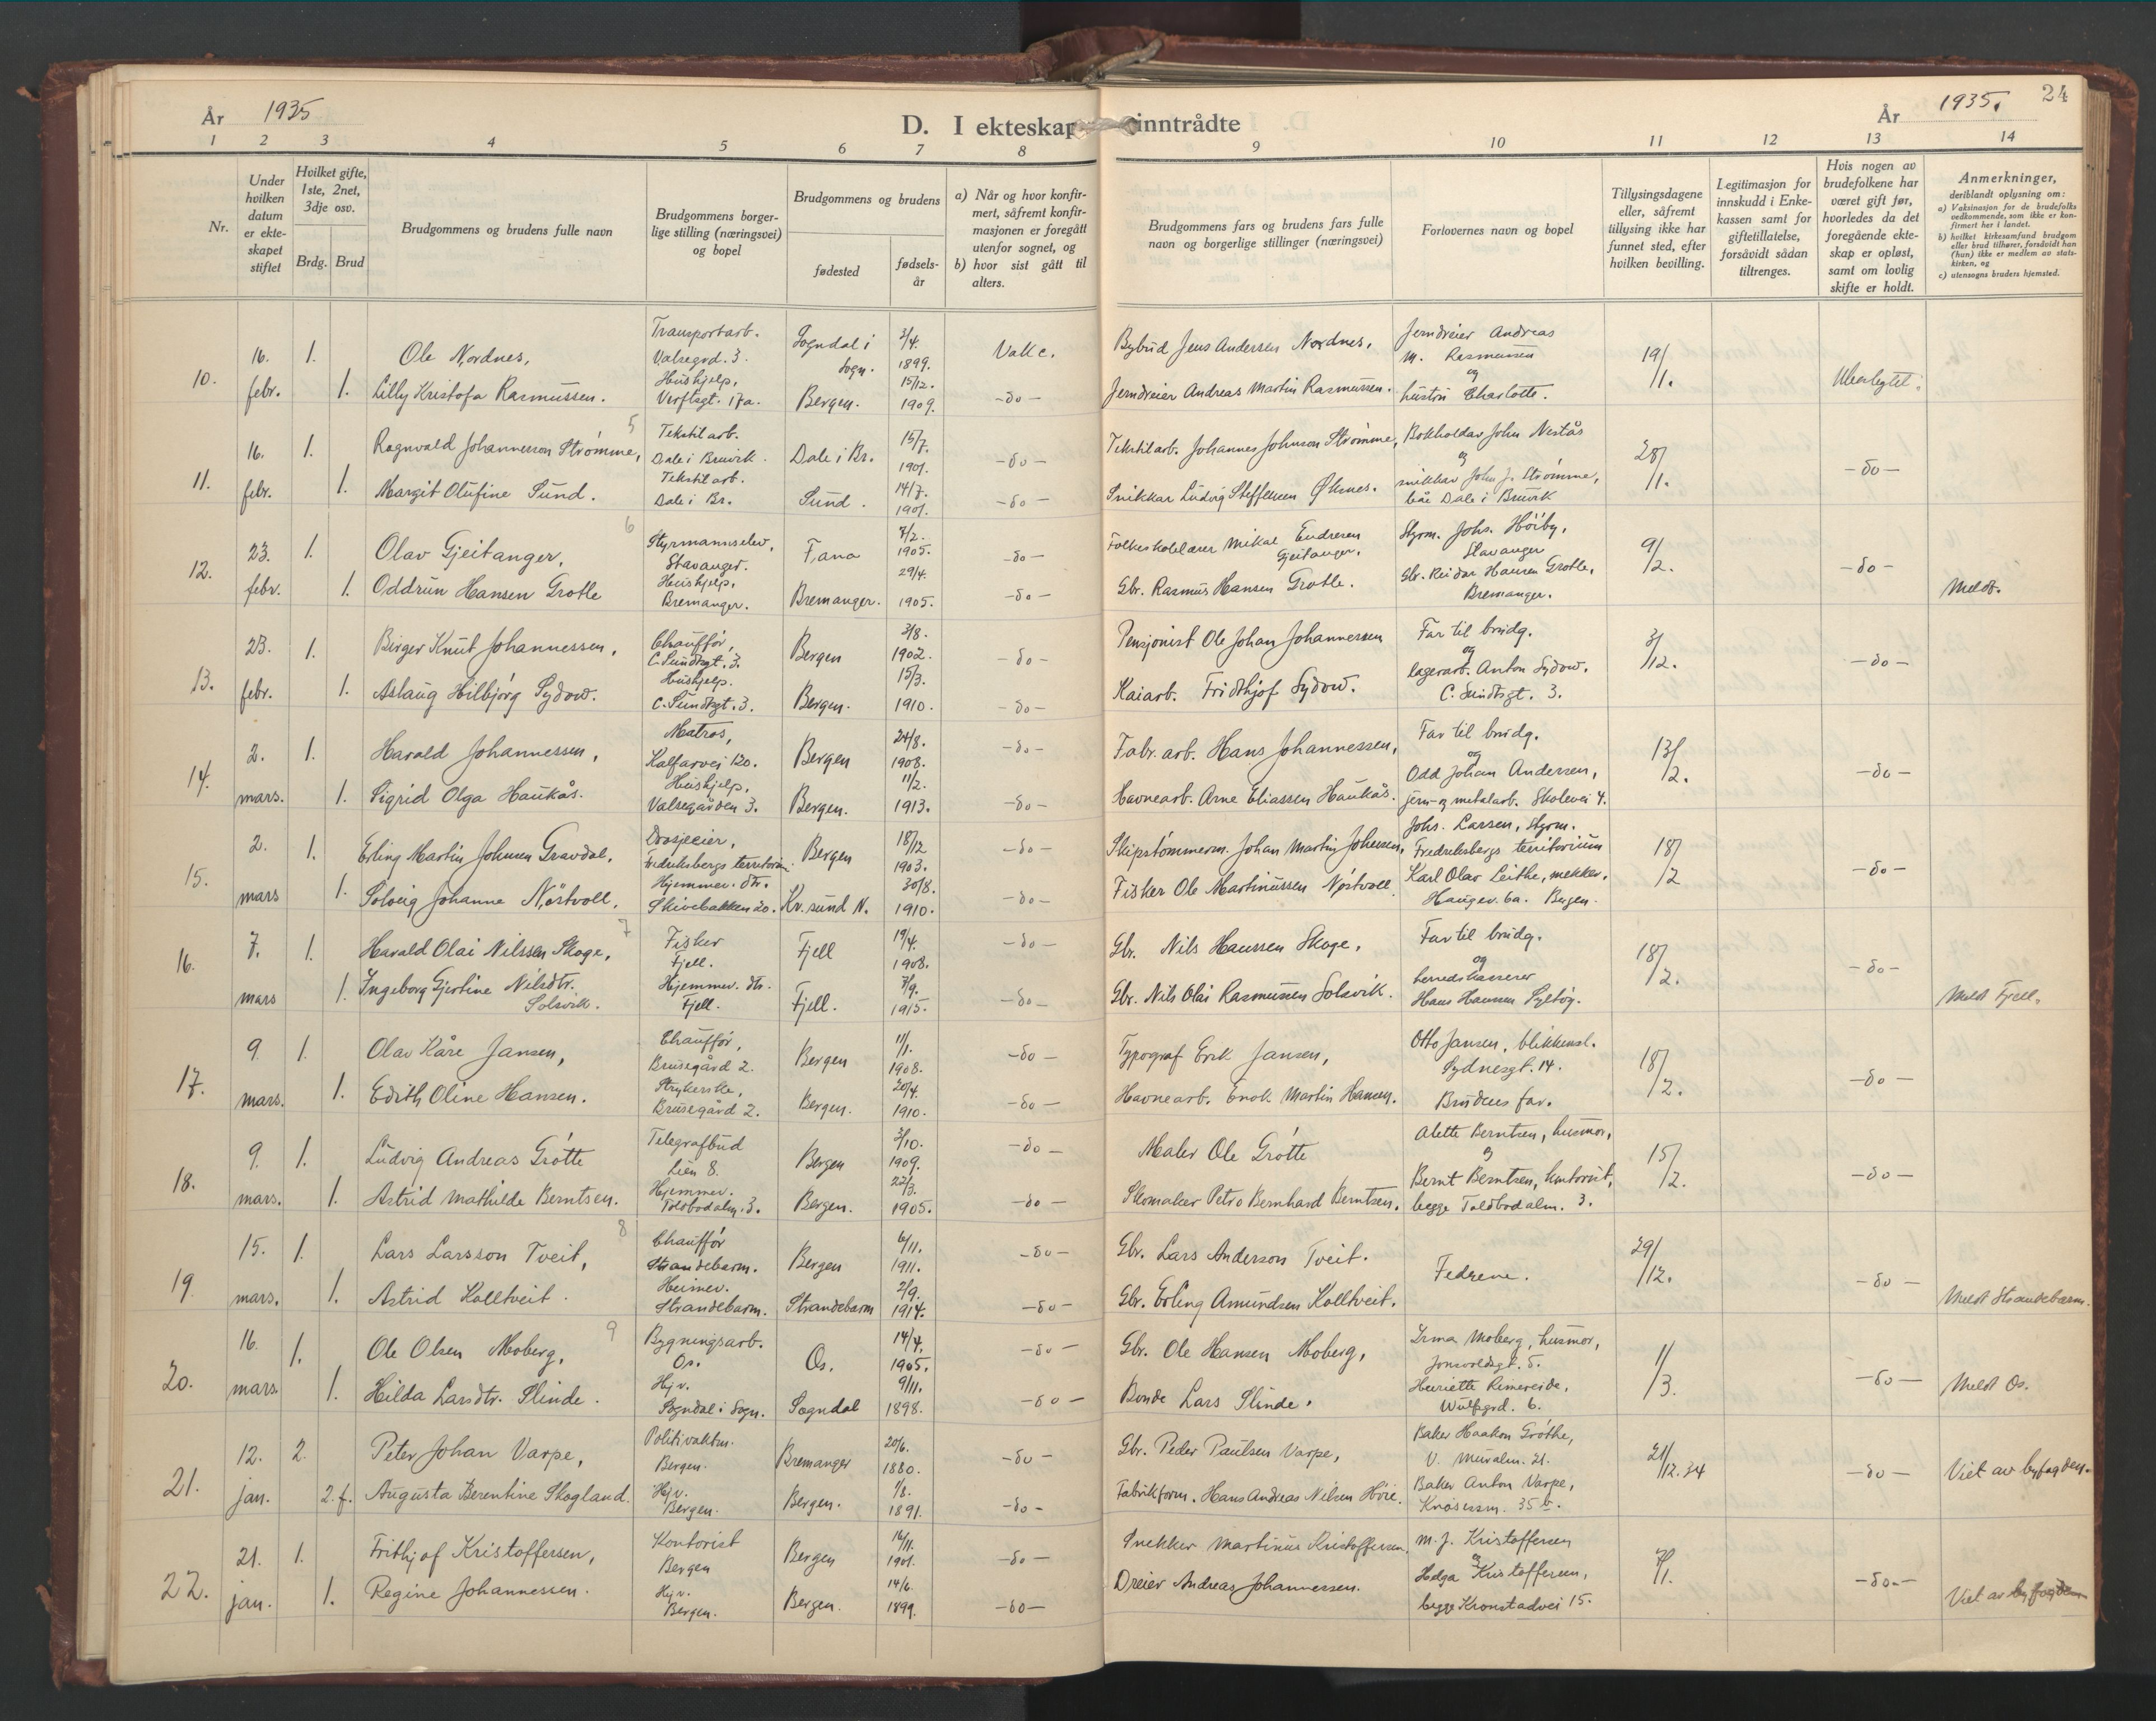 År 1935
D. I ekteskap inntrådte
År 1935.
24
1 2 3 4 5 6 7 8 9 10 11 12 13 14
Nr.
Under hvilken datum er ekteskapet stiftet
Hvilket gifte, 1ste, 2net, 3dje osv.
Brdg. Brud
Brudgommens og brudens fulle navn
Brudgommens borgerlige stilling (næringsvei) og bopel
Brudgommens og brudens
fødested
fødselsår
a) Når og hvor konfirmert, såfremt konfirmasjonen er foregått utenfor sognet, og
b) hvor sist gått til alters.
Brudgommens fars og brudens fars fulle navn og borgerlige stillinger (næringsvei)
Forlovernes navn og bopel
Tillysingsdagene eller, såfremt tillysing ikke har funnet sted, efter hvilken bevilling.
Legitimasjon for innskudd i Enkekassen samt for giftetillatelse, forsåvidt sådan tiltrenges.
Hvis nogen av brudefolkene har været gift før, hvorledes da det foregående ekteskap er opløst, samt om lovlig skifte er holdt.
Anmerkninger,
deriblandt oplysning om:
a) Vaksinasjon for de brudefolks vedkommende, som ikke er konfirmert her i landet.
b) hvilket kirkesamfund brudgom eller brud tilhører, forsåvidt han (hun) ikke er medlem av statskirken, og
c) utensogns bruders hjemsted.
10. 16. febr. 1. Ole Nordnes, Transportarb. Valsegrd. 3. Sogndal i Sogn. 3/4. 1899. Bybud Jens Andersen Nordnes, Jerndreier Andreas M. Rasmussen 19/1.
1. Lilly Kristofa Rasmussen. Hushjelp, Verftsgt. 17a. Bergen. 15/12. 1909. -do- Jerndreier Andreas Martin Rasmussen. og hustru Charlotte.
5
11. 16. febr. 1. Ragnvald Johannesson Strømme, Tekstilarb. Dale i Bruvik. Dale i Br. 15/7. 1901. -do- Tekstilarb. Johannes Johnson Strømme, Bokholdar John Nestås 28/1. -do-
1. Margit Olufine Sund. Tekstilarb. Dale i Br. Sund. 14/7. 1901. -do- Snikkar Ludvig Steffensen Øknes. og snikkar John J. Strømme, båe Dale i Bruvik
6
12. 23. febr. 1. Olav Gjeitanger, Styrmannselev, Stavanger. Fana 7/2. 1905. -do- Folkeskolelærer Mikal Endresen Gjeitanger. Styrm. Johs. Høiby, Stavanger 9/2. -do-
1. Oddrun Hansen Grotle Hushjelp, Bremanger. Bremanger. 29/4. 1905. -do- Gbr. Rasmus Hansen Grotle. Gbr. Reidar Hansen Grotle, Bremanger. Meldt.
13. 23. febr. 1. Birger Knut Johannessen, Chauffør, C. Sundtsgt. 3. Bergen 3/8. 1902. -do- Pensjonist Ole Johan Johannessen Far til brudg. 3/12. -do-
1. Aslaug Hilbjørg Sydow. Hushjelp. C. Sundtsgt. 3. Bergen. 15/3. 1910. -do- Kaiarb. Fridthjof Sydow. og lagerarb. Anton Sydow. C. Sundtsgt. 3.
14. 2. mars. 1. Harald Johannessen, Matros, Kalfarvei 120. Bergen 24/8. 1908. -do- Fabr.arb. Hans Johannessen, Far til brudg. 13/2. -do-
1. Sigrid Olga Haukås. Hushjelp, Valsegården 3. Bergen. 11/2. 1913. -do- Havnearb. Arne Eliassen Haukås. og Odd Johan Andersen, jern- og metalarb. Skolevei 4.
15. 2. mars 1. Erling Martin Johnsen Gravdal, Drosjeeier, Fredriksbergs territorium. Bergen 18/12 1903. -do- Skipstømmerm. Johan Martin Johnsen, Johs. Larsen, Styrm. Fredriksbergs territorium 18/2 -do-
1. Solveig Johanne Nøstvoll, Hjemmev. dtr. Skivebakken 20. Kr.sund N. 30/8. 1910. -do- Fisker Ole Martinussen Nøstvoll Karl Olav Leithe, mekker. Haugev. 6a. Bergen.
7
16. 7. mars 1. Harald Olai Nilssen Skoge, Fisker Fjell. Fjell 19/4. 1908. -do- Gbr. Nils Hanssen Skoge, Far til brudg. 18/2. -do-
1. Ingeborg Gjertine Nilsdtr. Solsvik. Hjemmev. dtr. Fjell. Fjell. 7/9. 1915. -do- Gbr. Nils Olai Rasmussen Solsvik. og herredskasserer Hans Hansen Syltøy. Meldt Fjell.
17. 9. mars. 1. Olav Kåre Jansen, Chauffør, Brusegård 2. Bergen 11/1. 1908. -do- Typograf Erik Jansen, Otto Jansen, blikkensl. Sydnesgt. 14. 18/2. -do-
1. Edith Oline Hansen. Strykerske, Brusegård 2. Bergen. 20/4. 1910. -do- Havnearb. Enok Martin Hansen. Brudens far.
18. 9. mars. 1. Ludvig Andreas Grotte Telegrafbud Lien 8. Bergen 3/10. 1909. -do- Maler Ole Grotte Alette Berntsen, husmor, 15/2. -do-
1. Astrid Mathilde Berntsen. Hjemmev. Tolbodalm. 3. Bergen. 22/3. 1905. -do- Skomaker Petro Bernhard Berntsen. og Bernt Berntsen, kontorist, begge Toldbodalm. 3.
8
19. 15. mars. 1. Lars Larsson Tveit, Chauffør Strandebarm. Bergen 6/11. 1911. -do- Gbr. Lars Anderson Tveit. Fedrene. 29/12. -do-
1. Astrid Kolltveit. Heimev. Strandebarm. Strandebarm 2/9. 1914. -do- Gbr. Erling Amundsen Kolltveit. Meldt Strandebarm.
9
20. 16. mars. 1. Ole Olsen Moberg, Bygningsarb. Os. Os. 14/4. 1905. -do- Gbr. Ole Hansen Moberg, Irma Moberg, husmor, Jonsvoldsgt. 5. 1/3. -do- Meldt Os.
1. Hilda Larsdtr. Slinde. Hjv. Sogndal i Sogn. Sogndal 9/11. 1898. -do- Bonde Lars Slinde. Henriette Rimereide, Wulfsgrd. 6.
21. 12. jan. 2. Peter Johan Varpe, Politivaktm. Bergen. Bremanger 20/6. 1880. -do- Gbr. Peder Paulsen Varpe, Baker Haakon Grøthe, V. Muralm. 21. 21/12.34 -do- Viet av byfogden.
2.f. Augusta Berentine Skogland. Hjv. Bergen. Bergen. 1891. -do- Fabrikform. Hans Andreas Nilsen Høie. Baker Anton Varpe, Knøsesm. 35 b.
22. 21. jan. 1. Frithjof Kristoffersen, Kontorist Bergen Bergen 16/11. 1901. -do- Snekker Martinus Kristoffersen. M. J. Kristoffersen 7/1. -do-
1. Regine Johannessen. Hjv. Bergen. Bergen. 14/6. 1899. -do- Dreier Andreas Johannessen. og Helga Kristoffersen, begge Kronstadvei 15. Viet av byfogden